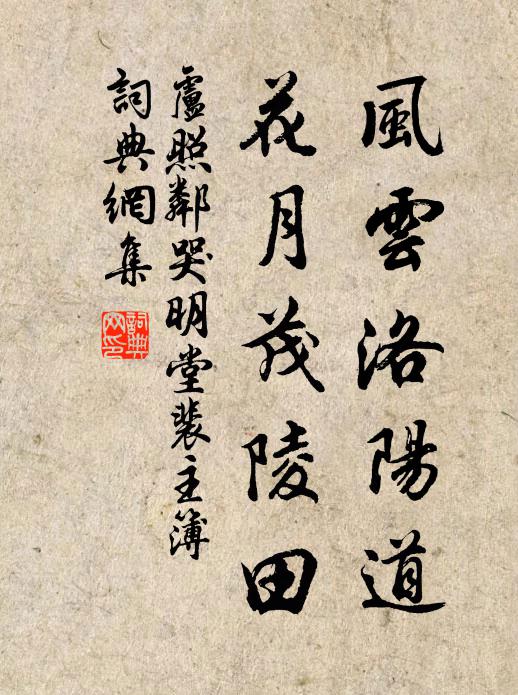 風雲洛陽道
花月茂陵田
盧照鄰哭明堂裴主簿
詞典網集
詞典
网印